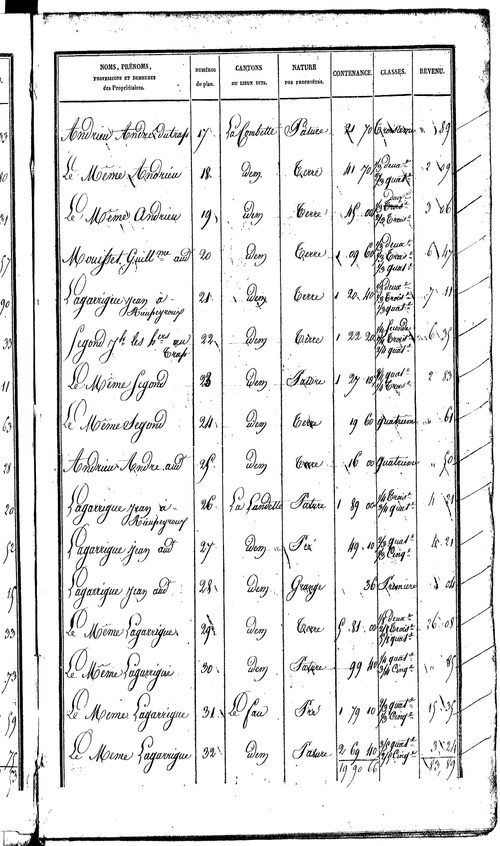 NOMS, PRÉNOMS, PROFESSIONS ET DEMEURES des Propriétaires. NUMÉROS du plan. CANTONS OU LIEUX DITS. NATURE DES PROPRIÉTÉS. CONTENANCE. CLASSES. REVENU.
Andrieu André du trap 17 La Combette Pature 21 70 Troisieme " 89
Le Même Andrieu 18 idem Terre 41 70 deux.e quat.e 2 09
Le Même Andrieu 19 idem Terre 45 00 Trois.e 3 06
Mouisset Guill.me aud 20 idem Terre 1 09 60 1/3 deux.e 1/3 Trois.e 1/3 quat.e 6 47
Lagarrigue jean à Raupeyroux 21 idem Terre 1 20 40 1/3 deux.e 1/3 Trois.e 1/3 quat.e 7 11
Segond les h.ers au Trap 22 idem Terre 1 22 20 Trois.e quat.e 6 35
Le Même Segond 23 idem Pature 1 27 10 quat.e Trois.e 2 83
Le Même Segond 24 idem Terre 19 60 quatrieme " 61
Andrieu André aud 25 idem Terre 16 00 Quatrieme " 50
Lagarrigue jean à Raupeyroux 26 La Landette Pature 1 89 00 1/4 Trois.e 3/4 quat.e 4 21
Lagarrigue jean aud 27 idem Pré 49 10 quat.e Cinq.e 4 21
Lagarrigue jean aud 28 idem Grange 36 Premiere 04
Le Même Lagarrigue 29 idem Terre 5 81 00 deux.e Trois.e quat.e 26 08
Le Même Lagarrigue 30 idem Pature 99 40 1/4 quat.e 3/4 Cinq.e " 85
Le Même Lagarrigue 31 Le fau Pré 1 79 10 quat.e Cinq.e 15 35
Le Même Lagarrigue 32 idem Pature 2 69 40 quat.e Cinq.e 3 24
19 90 66 83 89